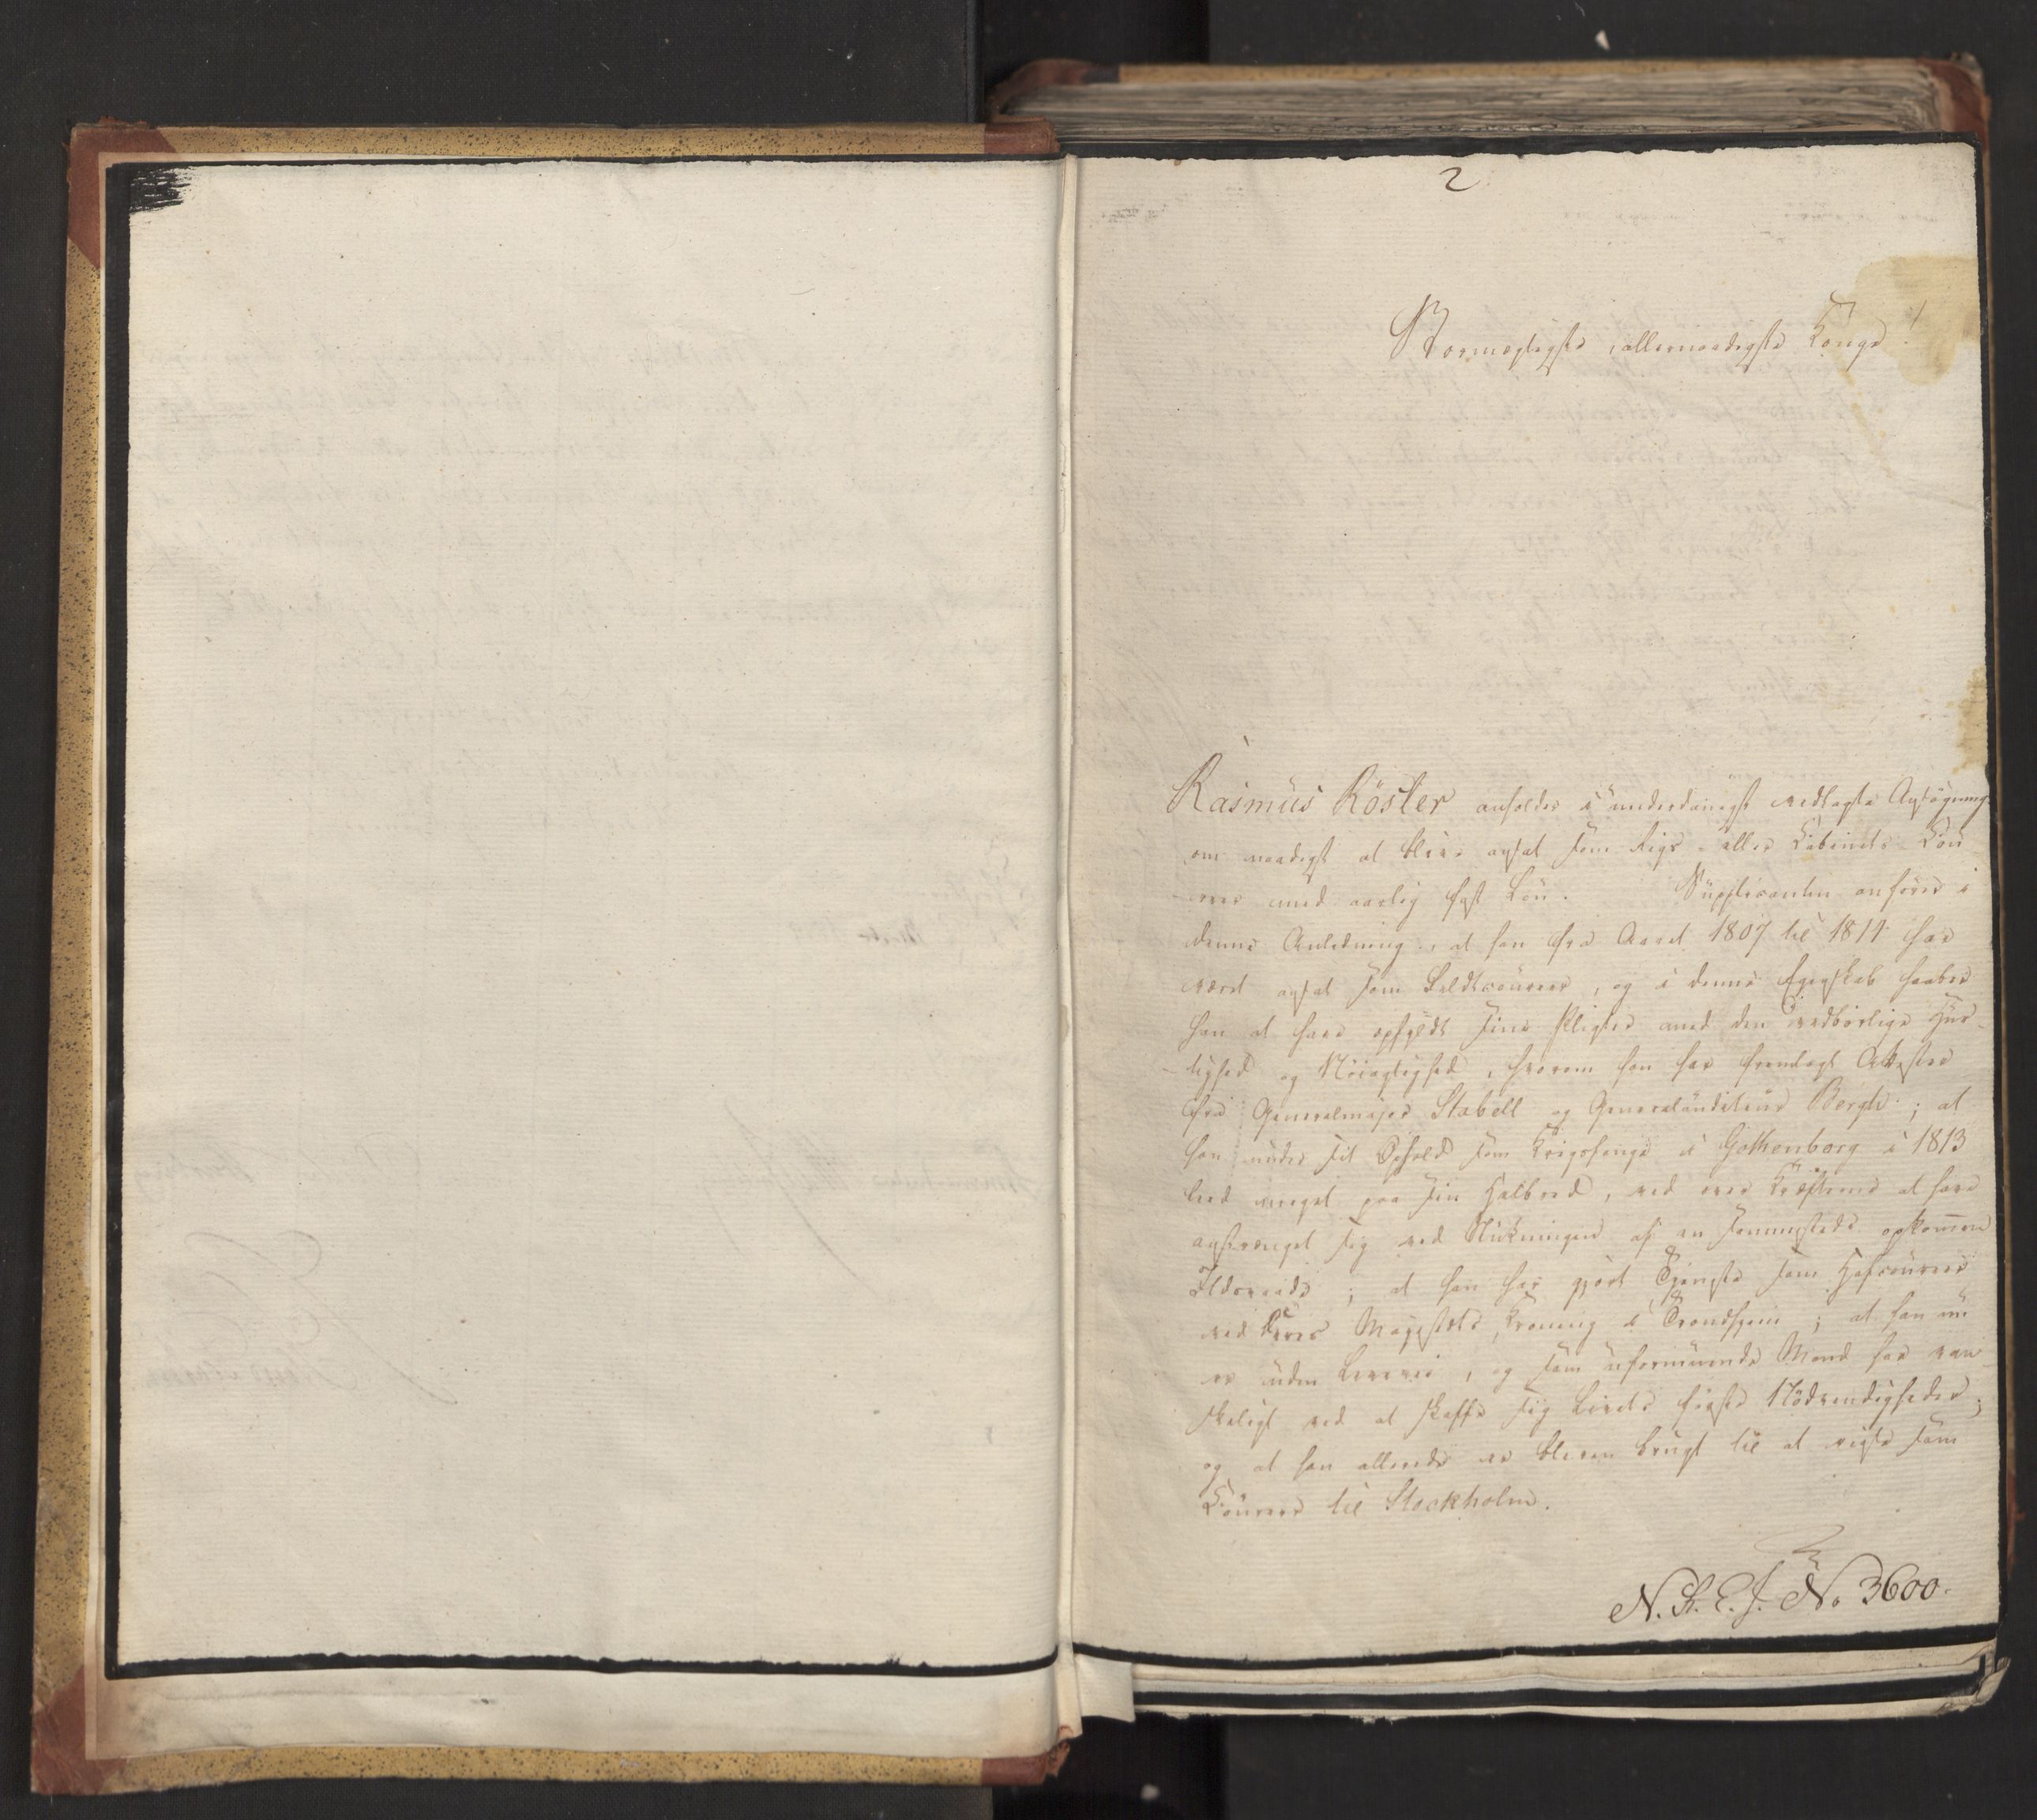 2
Stormægtigste, allernaadigste Konge!
Rasmus Röster anholder i underdanigst vedlagte Ansögning
om naadigst at blive ansat som Rigs- eller Kabinets-Cou-
-rer med aarlig fast Lön. Supplicanten anförer i
denne Anledning, at han fra Aaret 1807 til 1814 har
været ansat som Feldtcourer, og i denne Egenskab haaber
han at have opfyldt sine Pligter med den tilbörlige Hur-
-tighed og Nöiagtighed, hvorom han har fremlagt Attester
fra Generalmajor Stabell og Generalauditeur Bergh; at
han under sit Ophold som Krigsfange i Gothenborg i 1813
leed meget paa sin Helbred, ved over Kræfterne at have
anstrenget sig ved Slukningen af en sammesteds opkommen
Ildsvaade; at han har gjort Tjeneste som Hofcourer
ved Deres Majestæts Kroning i Trondhjem; at han nu
er uden Levevei, og som uformuende Mand har van-
skeligt ved at skaffe sig Livets förste Nödvendigheder;
og at han allerede er bleven brugt til at reise som
Courer til Stockholm.
N. St. E. J. No 3600.